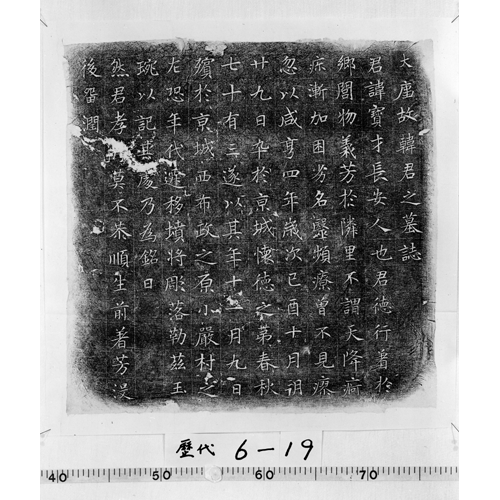 大唐故韓君之墓誌
君諱寶才長安人也君徳行著於
鄉閭物義芳於隣里不謂天降痾
疾漸加困劣名毉頻療曾不見瘳
忽以咸亨四年歲次己酉十月朔
廿九日卒於京城懷徳之第春秋
七十有三遂以其年十一月九日
殯於京城西布政之原小嚴村之
左恐年代遷移墳將彫落勒茲玉
琬以記其處乃為銘曰
然君孝莫不恭順生前著芳沒
後留潤
歷代 6-19
40 50 60 70